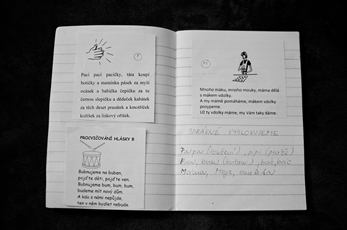 Paci paci pacičky, táta koupí
botičky a maminka pásek za myší
ocásek a babička čepičku za tu
černou slepičku a dědeček kabátek
za těch deset prasátek a
kožíšek za liškový oříšek.
PROCVIČOVÁNÍ HLÁSKY B
Bubnujeme na buben,
pojďte děti, pojďte ven.
Bubnujeme bum, bum, bum,
budeme mít nový dům.
A kdo s námi nepůjde,
ten v něm bydlet nebude.
Mnoho máku, mnoho mouky, máma dělá
s mákem vdolky.
A my mámě pomáháme, mákem vdolky
posypeme.
Už ty vdolky máme, my Vám taky dáme.
SPRÁVNĚ VYSLOVUJEME